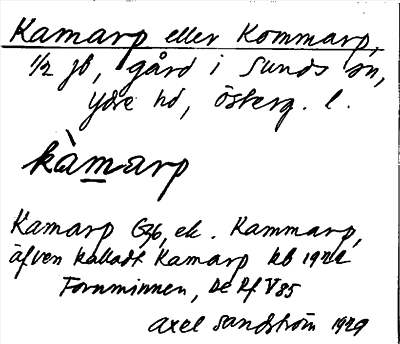 Kamarp eller Kommarp,
1/2 jb, gård i Sunds sn,
Ydre hd, Österg. l.
kàmarp
Kamarp Gzb, ek. Kammarp,
äfven kalladt Kamarp hb
Fornminnen, De Rf V 85
Axel Sandström 1929